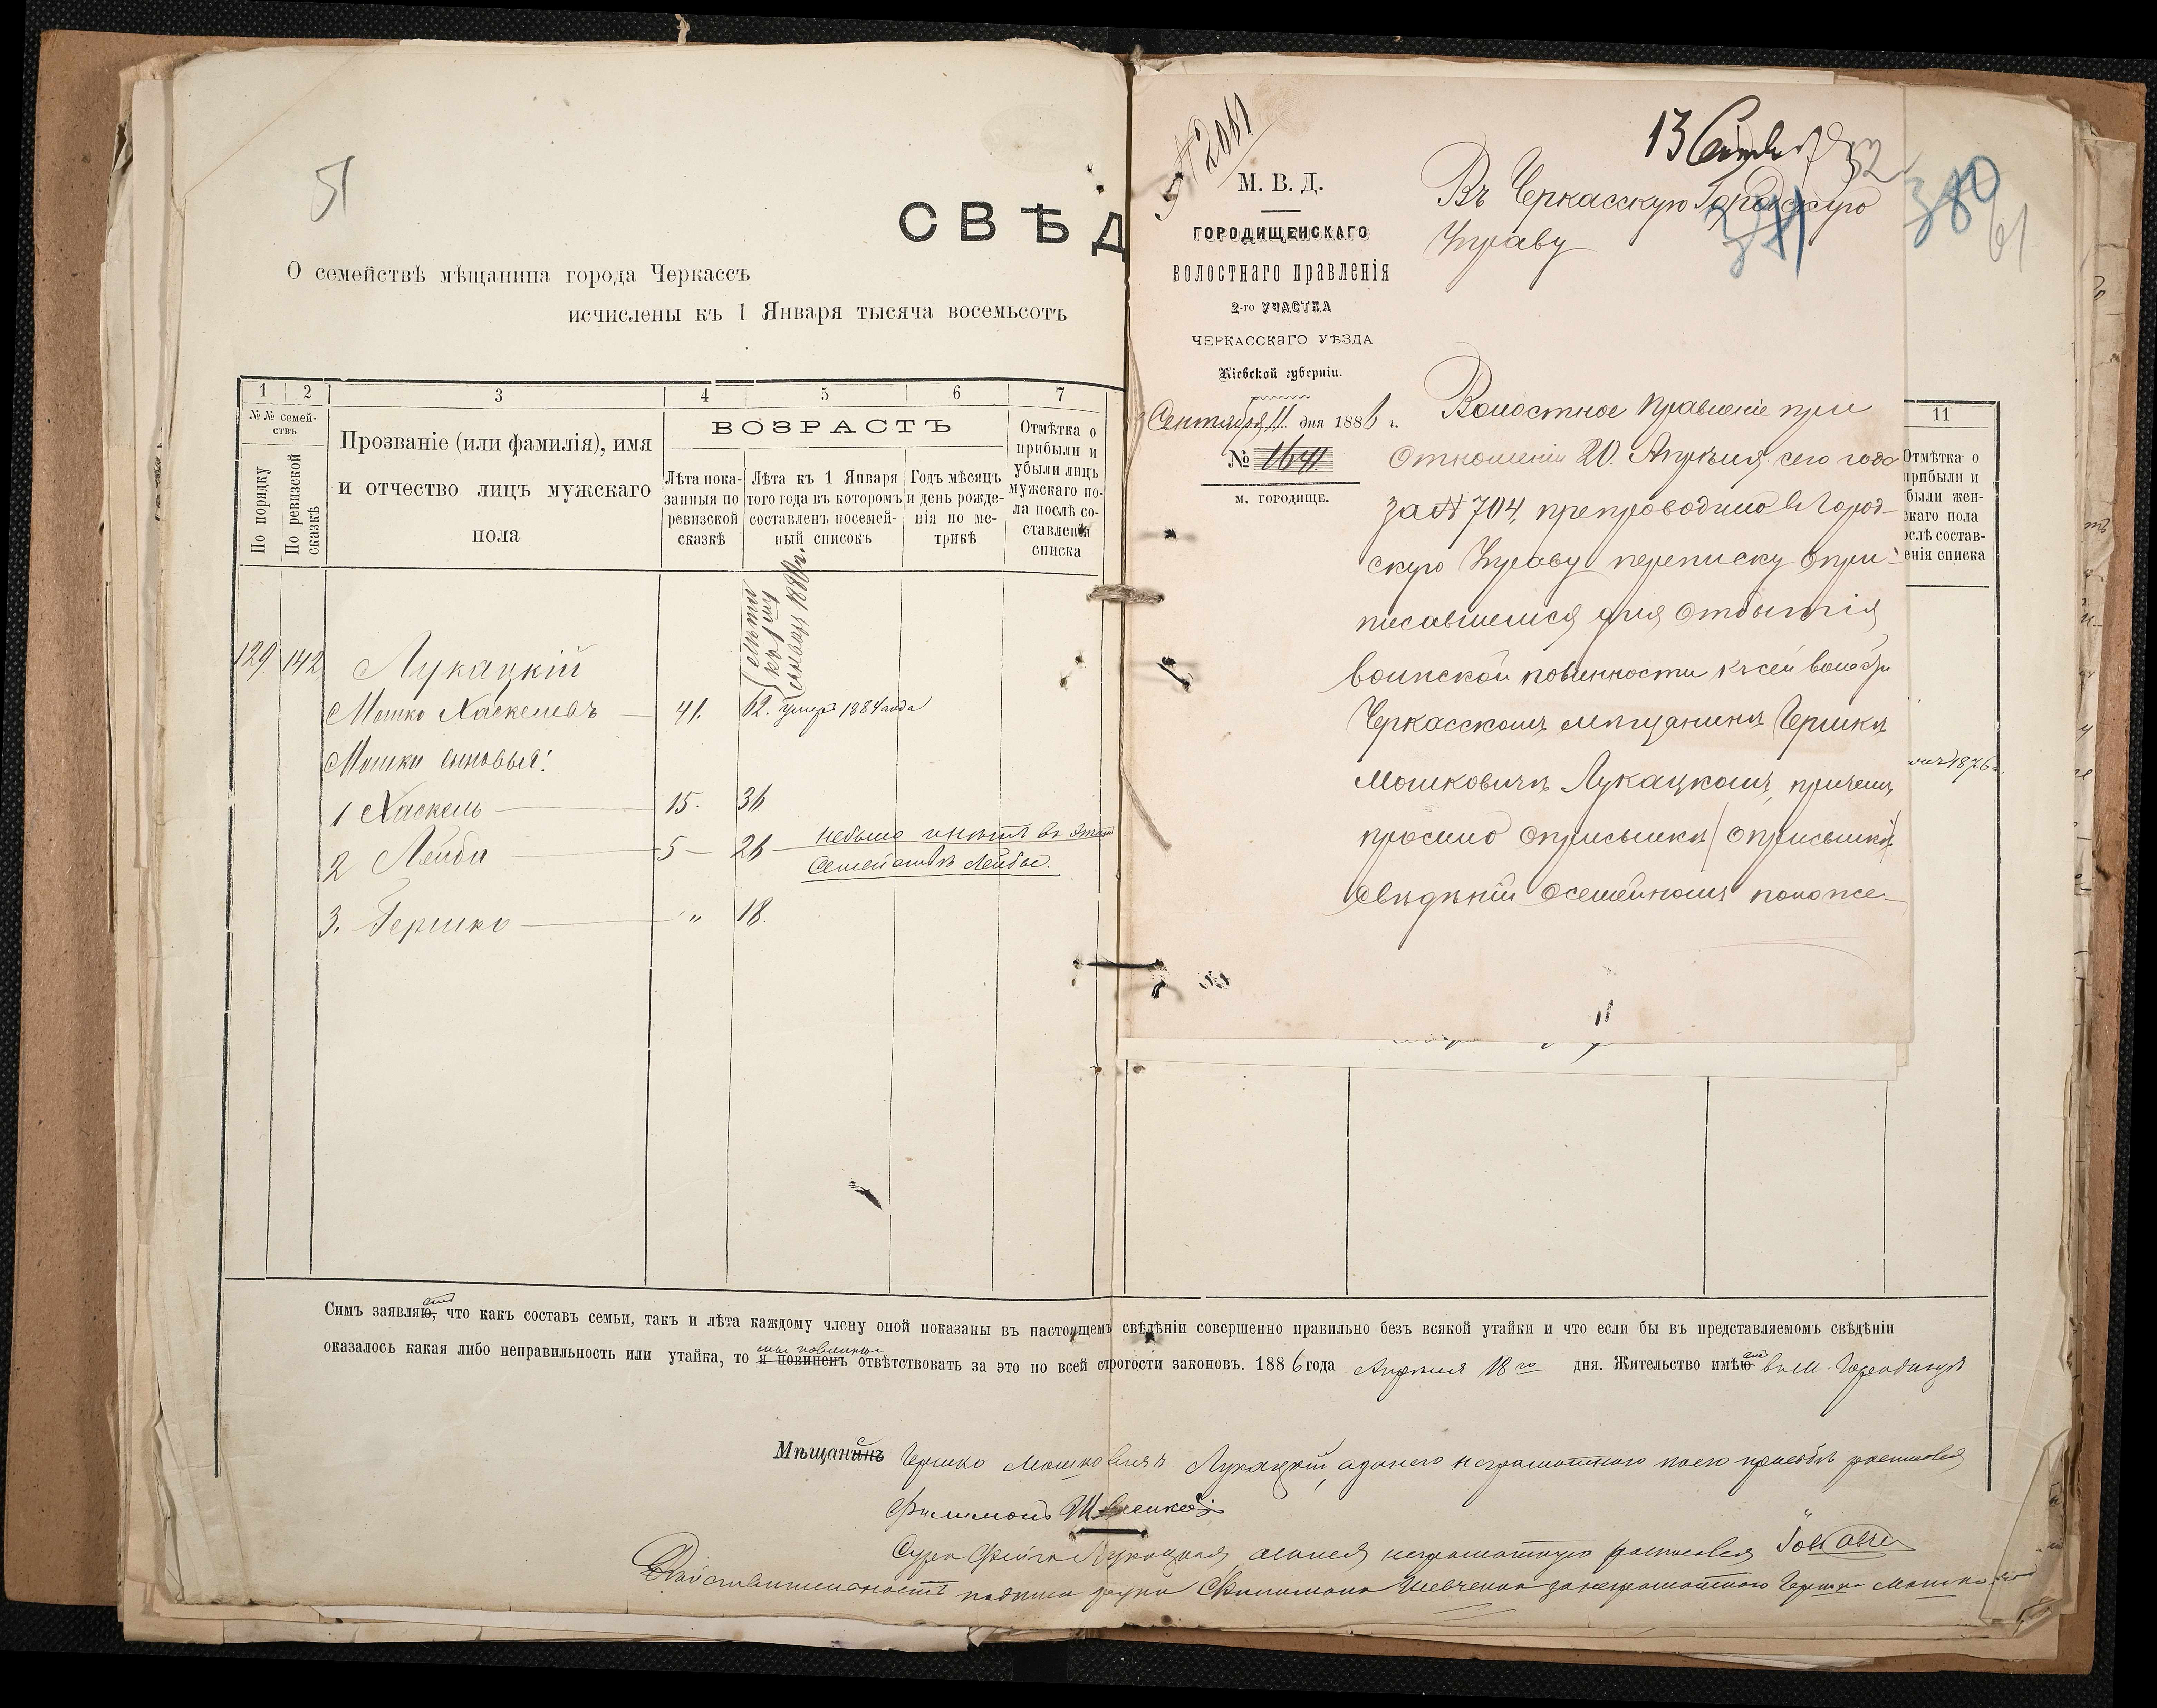 51
СВѢД
О семействѣ мѣщанина города Черкассъ
исчислены къ 1 Января тысяча восемьсотъ
1 2 3 4 5 6 7
№№ семей-
ствъ
По порядку
По ревизской
сказкѣ
Прозваніе (или фамилія), имя
и отчество лицъ мужскаго
пола
ВОЗРАСТЪ
Лѣта пока-
занныя по
ревизской
сказкѣ
Лѣта къ 1 Января
того года въ которомъ
составленъ посемей-
ный списокъ
Годъ мѣсяцъ
и день рожде-
нія по ме-
трикѣ
Отмѣтка о
прибыли и
убыли лицъ
мужскаго по-
ла послѣ со-
ставленія
списка
129 142 Лукацкій
Мошко Хаскелевъ 41. 62. умеръ 1884 года
Мошки сыновья:
1 Хаскель 15. 36
2 Лейба 5 26 небыло и нѣтъ въ этомъ
Семействѣ Лейбы.
3. Гершко „ 18.
№ 2061
М. В. Д.
ГОРОДИЩЕНСКАГО
ВОЛОСТНАГО ПРАВЛЕНІЯ
2-го УЧАСТКА
ЧЕРКАССКАГО УѢЗДА
Кіевской губерніи.
Сентября 11 дня 1886 г.
№ 1641
м. ГОРОДИЩЕ.
13
52
Въ Черкасскую Городскую
Управу
380
61
Волостное Правленіе при
отношеніи 20. Апрѣля сего года
за № 704, препроводило в Город-
скую Управу переписку о при-
писавшемся для отбытія
воинской повинности къ сей волости
Черкасскомъ мѣщанинѣ Гершкѣ
Мошковичѣ Лукацкомъ, причемъ
просило о присылкѣ
свѣдѣній о семейномъ положе-
11
Отмѣтка о
прибыли и
были жен-
скаго пола
ослѣ состав-
енія списка
1876
Симъ заявляю, что какъ составъ семьи, такъ и лѣта каждому члену оной показаны въ настоящемъ свѣдѣніи совершенно правильно безъ всякой утайки и что если бы въ представляемомъ свѣдѣніи
оказалось какая либо неправильность или утайка, то я повиненъ мы повинны отвѣтствовать за это по всей строгости законовъ. 1886 года Апрѣля 18го дня. Жительство имѣю въ м. Городищѣ
Мѣщанинъ Гершко Мошковичъ Лукацкій, а за него неграмотного по его просьбѣ росписался
Филимонъ Шевченко
Сура Фейга Лукацкая, а за нея неграмотную росписался
Дѣйствительность подписи руки Филимона Шевченка за неграмотного Гершка Мошко